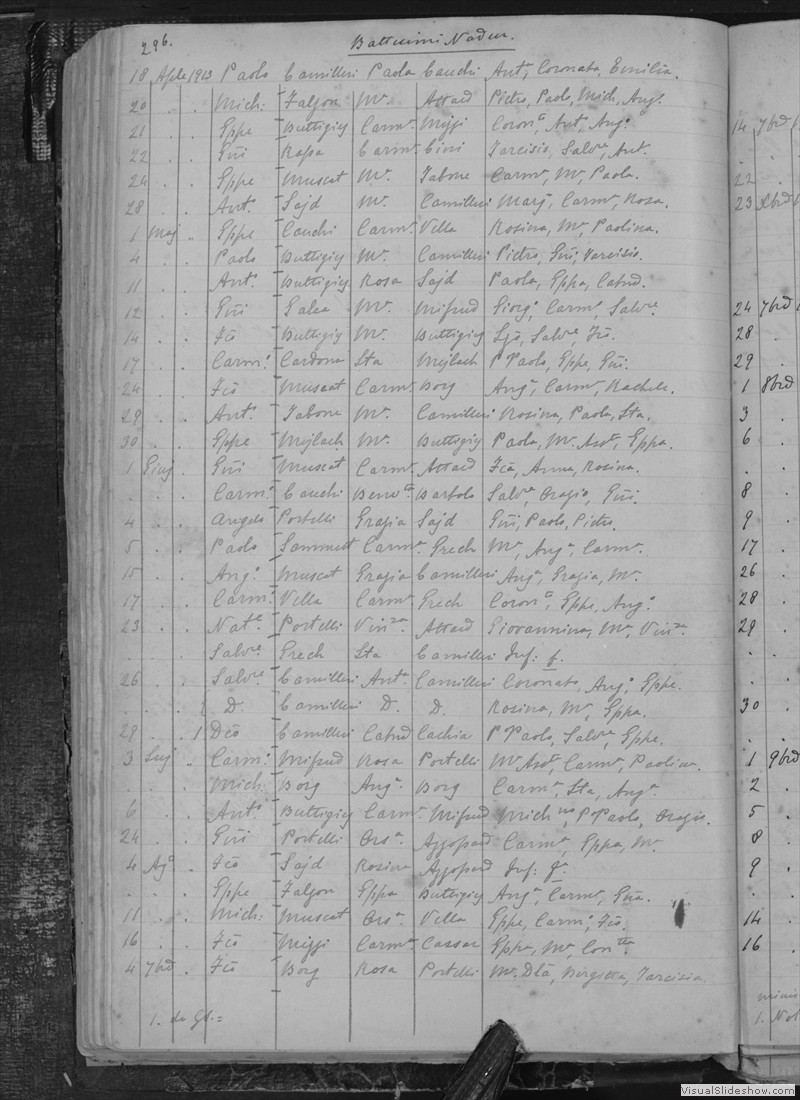 296.
Battesimi Nadur.
18 Aple 1913 Paolo Camilleri Paola Cauchi Ant, Coronato, Emilia.
20 . . Mich: Falzon Mª Attard Pietro, Paolo, Mich, Angº
21 . . Gppe Buttigieg Carmª Mizzi Coronª, Antº, Angº
22 . . Giñi Rapa Carmª Cini Tarcisio, Salvre, Ant.
24 . . Gppe Muscat Mª Tabone Carmª, Mª, Paola.
28 . . Antº Sajd Mª Camilleri Margª, Carmª, Rosa.
1 Maj .. Gppe Cauchi Carmª Vella Rosina, Mª, Paolina.
4 . . Paolo Buttigieg Mª Camilleri Pietro, Giñi, Tarcisio.
11 . . Antº Buttigieg Rosa Sajd Paola, Gppa, Catnd.
12 . . Giñi Galea Mª Mifsud Giorgº, Carmª, Salvre.
14 . . Fcõ Buttigieg Mª Buttigieg Salvre, Fcõ.
17 . . Carmº Cardona Sta Mejlach P Paolo, Gppe, Giñi.
24 . . Fcõ Muscat Carmª Borg Angª, Carmª, Rachele.
29 . . Antº Tabone Mª Camilleri Rosina, Paola, Sta.
30 . . Gppe Mejlach Mª Buttigieg Paola, Mª Astª, Gppa.
1 Giuj . Giñi Muscat Carmª Attard Fcã, Anna, Rosina.
. . . Carmº Cauchi Benvtª Bartolo Salvre, Orazio, Giñi.
4 . . Angelo Portelli Grazia Sajd Giñi, Paolo, Pietro.
5 . . Paolo Sammut Carmª Grech Mª, Angª, Carmª
15 . . Angº Muscat Grazia Camilleri Angª, Grazia, Mª.
17 . . Carmº Vella Carmª Grech Coronª, Gppe, Angº
23 . . Natle Portelli Vinza Attard Giovannina, Mª, Vinza.
. . . Salvre Grech Sta Camilleri Inf: f.
26 . . Salvre Camilleri Antª Camilleri Coronato, Angº, Gppe.
. . . D. Camilleri D. D. Rosina, Mª, Gppa.
28 . . 1 Dcõ Camilleri Catnd Cachia P Paolo, Salvre, Gppe.
3 Luj .. Carmº Mifsud Rosa Portelli Mª Astª, Carmª, Paolina.
. . . Mich Borg Angª Borg Carmª, Sta, Angª
6 . . Antº Buttigieg Carmª Mifsud Mich, P Paolo, Orazio.
24 . . Giñi Portelli Orsª Azzopard Carmª, Gppa, Mª.
4 Agº . Fcõ Sajd Rosina Azzopard Inf: f.
. . . Gppe Falzon Gppa Buttigieg Angª, Carmª, Giña.
11 . . Mich: Muscat Orsª Vella Gppe, Carmº, Fcõ.
16 . . Fcõ Mizzi Carmª Cassar Gppa, Mª,
4 7brd . Fcõ Borg Rosa Portelli Mª Dlã, Tarcisia.
1. de
14 7brd
.
22 .
23 Xbrd
24 7brd
28 .
29 .
1 8brd
3 .
6 .
.
8 .
9 .
17 .
26 .
28 .
29 .
.
30 .
.
1 9brd
2 .
5 .
8 .
9 .
.
14 .
16 .
VisualSlideshow.com